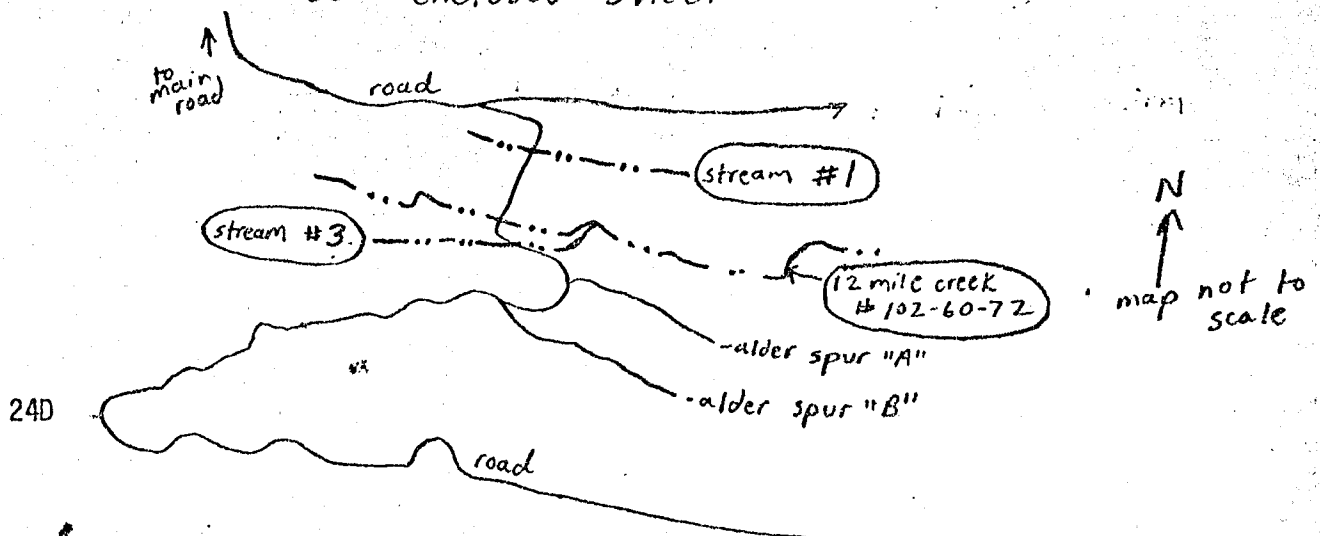 enclosed
to
main
road
road
stream #1
N
stream #3.
12 mile creek
# 102-60-72
map not to
scale
alder spur "A"
24D
alder spur "B"
road